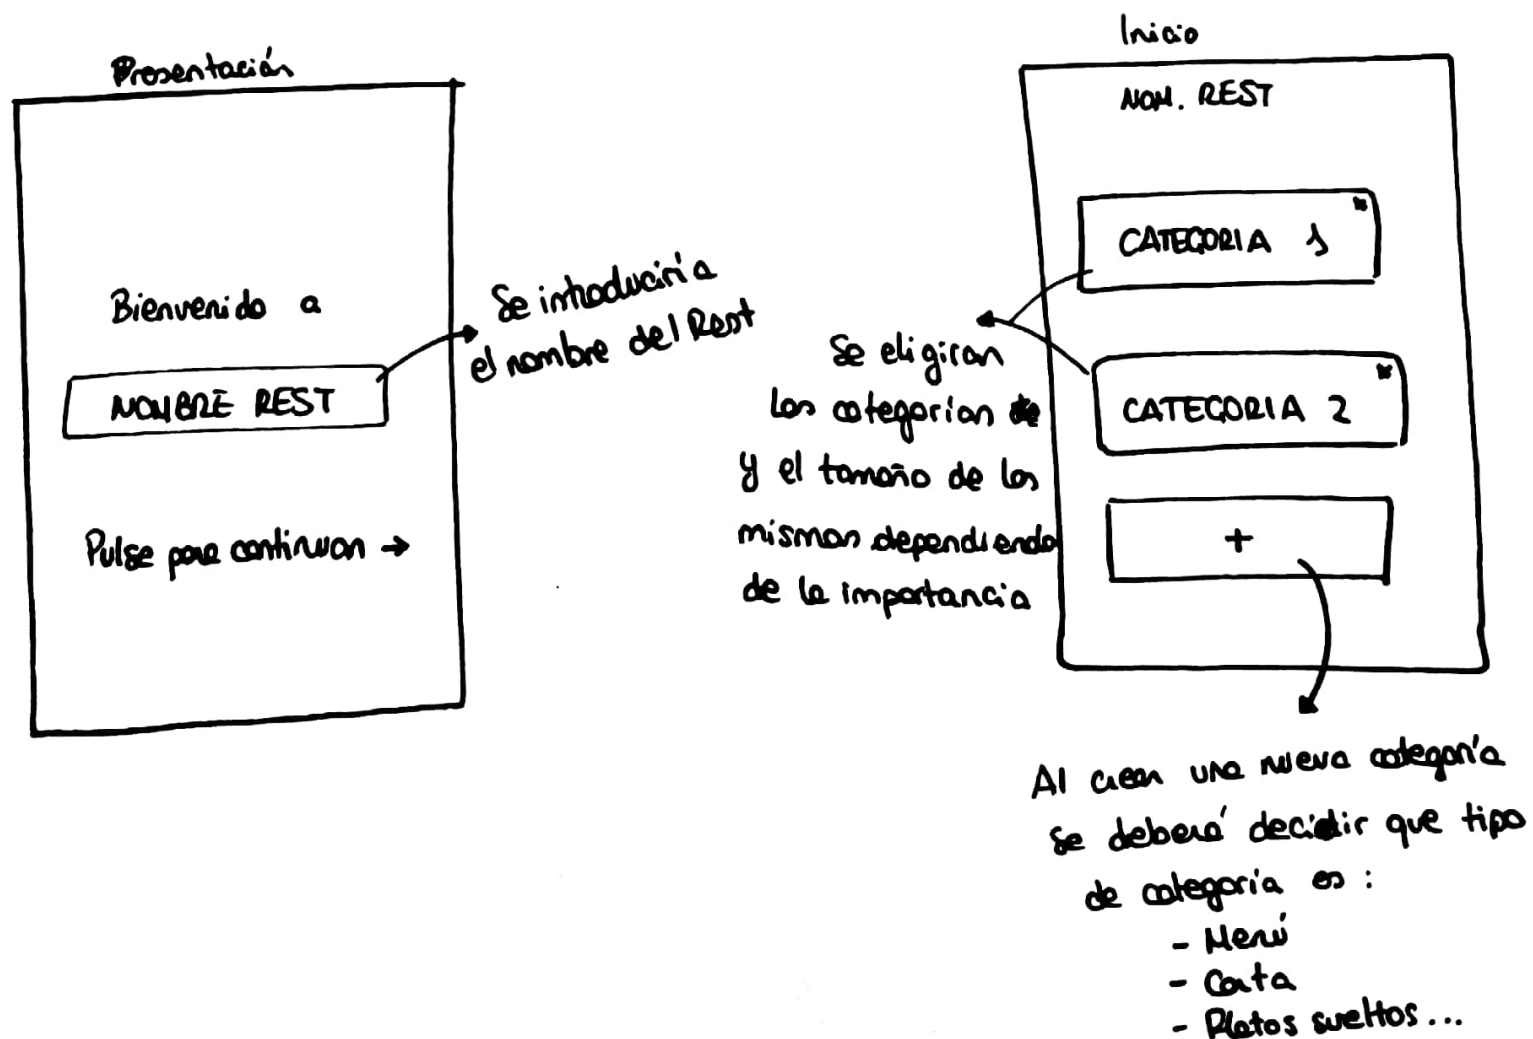 Presentación
Bienvenido a
NOMBRE REST
Pulse para continuar →
Se introduciría
el nombre del Rest
Inicio
NOM. REST
CATEGORIA 1
CATEGORIA 2
+
Se eligiran
las categorias de
y el tamaño de las
mismas dependiendo
de la importancia
Al crear una nueva categoría
se deberá decidir que tipo
de categoría es:
- Menú
- Carta
- Platos sueltos...